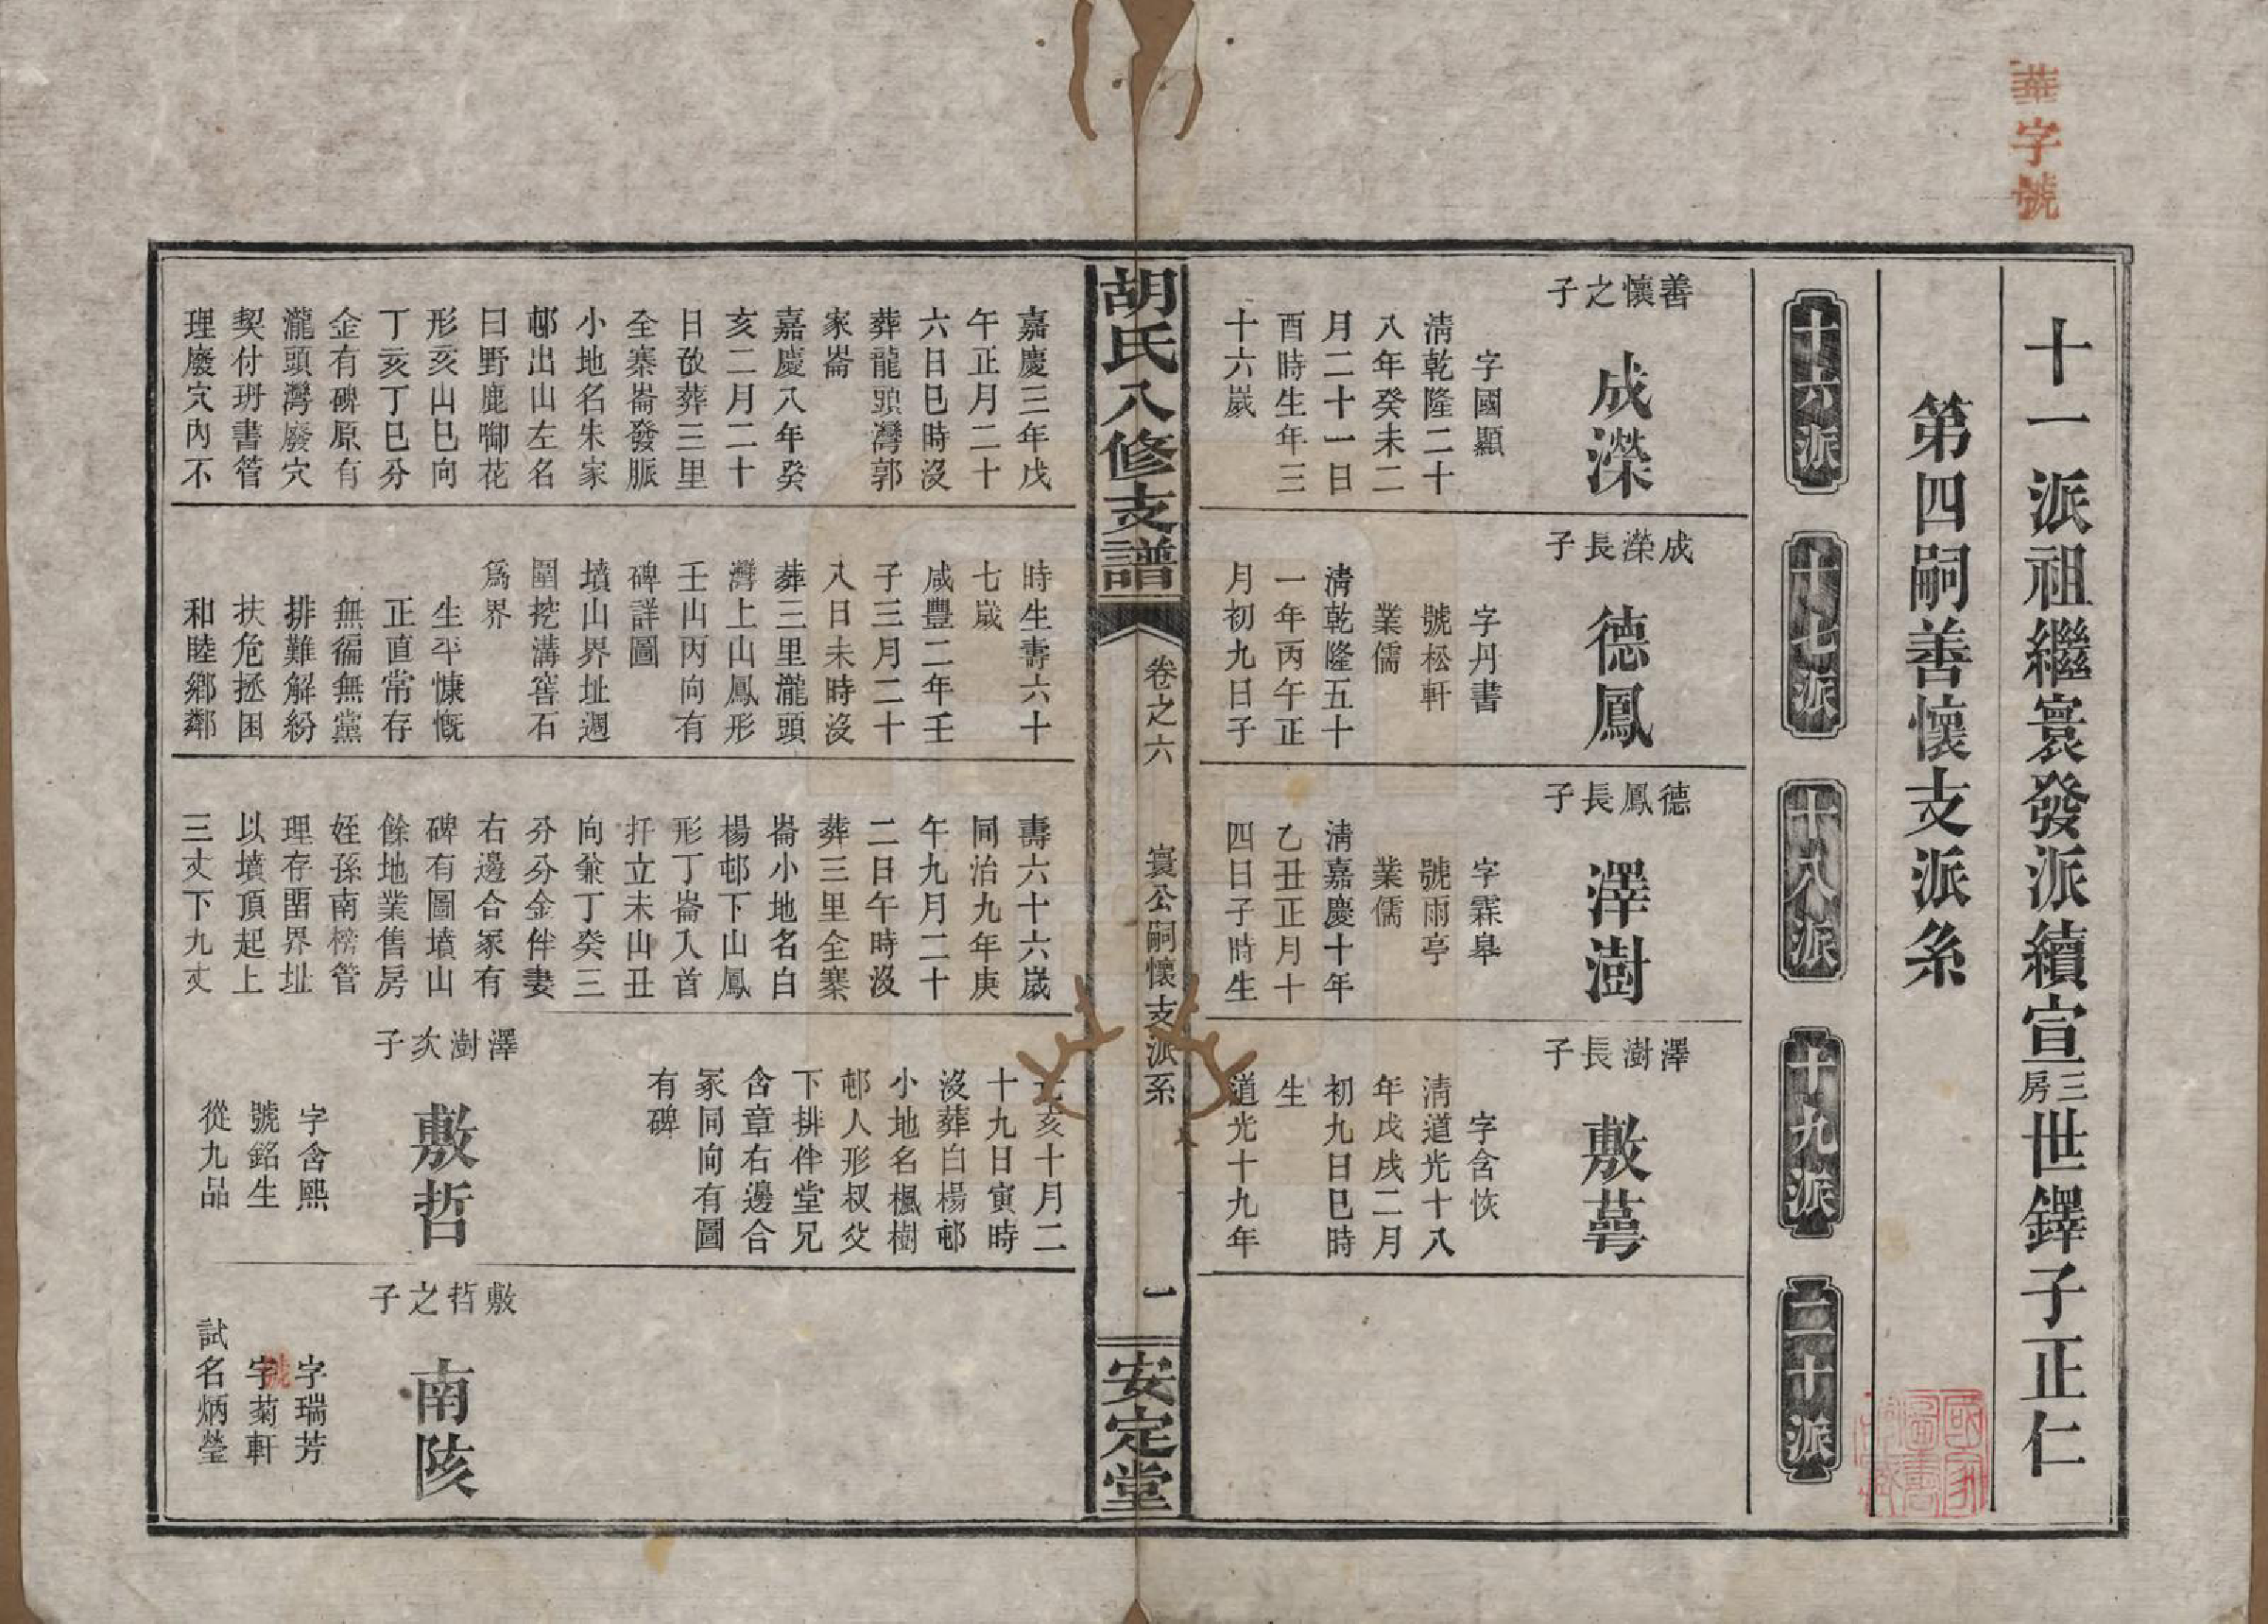 華字號
十一派祖繼寰發派續宣三房世鐸子正仁
第四嗣善懷支派系
十六派
十七派
十八派
十九派
二十派
善懷之子
成濚
字國顯
清乾隆二十
八年癸未二
月二十一日
酉時生年三
十六歲
成濚長子
德鳳
字丹書
號松軒
業儒
清乾隆五十
一年丙午正
月初九日子
德鳳長子
澤澍
字霖皋
號雨亭
業儒
清嘉慶十年
乙丑正月十
四日子時生
澤澍長子
敷蕚
字含恢
清道光十八
年戊戌二月
初九日巳時
生
道光十九年
胡氏八修支譜
卷之六
寰公嗣懷支派系
一
安定堂
嘉慶三年戊
午正月二十
六日巳時沒
葬龍頭灣郭
家崙
嘉慶八年癸
亥二月二十
日改葬三里
全寨崙發脈
小地名朱家
邨出山左名
曰野鹿啣花
形亥山巳向
丁亥丁巳分
金有碑原有
瀧頭灣廢穴
契付玥書管
理廢穴內不
時生壽六十
七歲
咸豐二年壬
子三月二十
八日未時沒
葬三里瀧頭
灣上山鳳形
壬山丙向有
碑詳圖
墳山界址週
圍挖溝窖石
爲界
生平慷慨
正直常存
無徧無黨
排難解紛
扶危拯困
和睦鄉鄰
壽六十六歲
同治九年庚
午九月二十
二日午時沒
葬三里全寨
崙小地名白
楊邨下山鳳
形丁崙入首
扦立未山丑
向兼丁癸三
分分金伴妻
右邊合冢有
碑有圖墳山
餘地業售房
姪孫南榜管
理存畱界址
以墳頂起上
三丈下九丈
亥十月二
十九日寅時
沒葬白楊邨
小地名楓樹
邨人形叔父
下排伴堂兄
含章右邊合
冢同向有圖
有碑
澤澍次子
敷哲
字含熙
號銘生
從九品
敷哲之子
南陔
字瑞芳
字菊軒
號
試名炳瑩